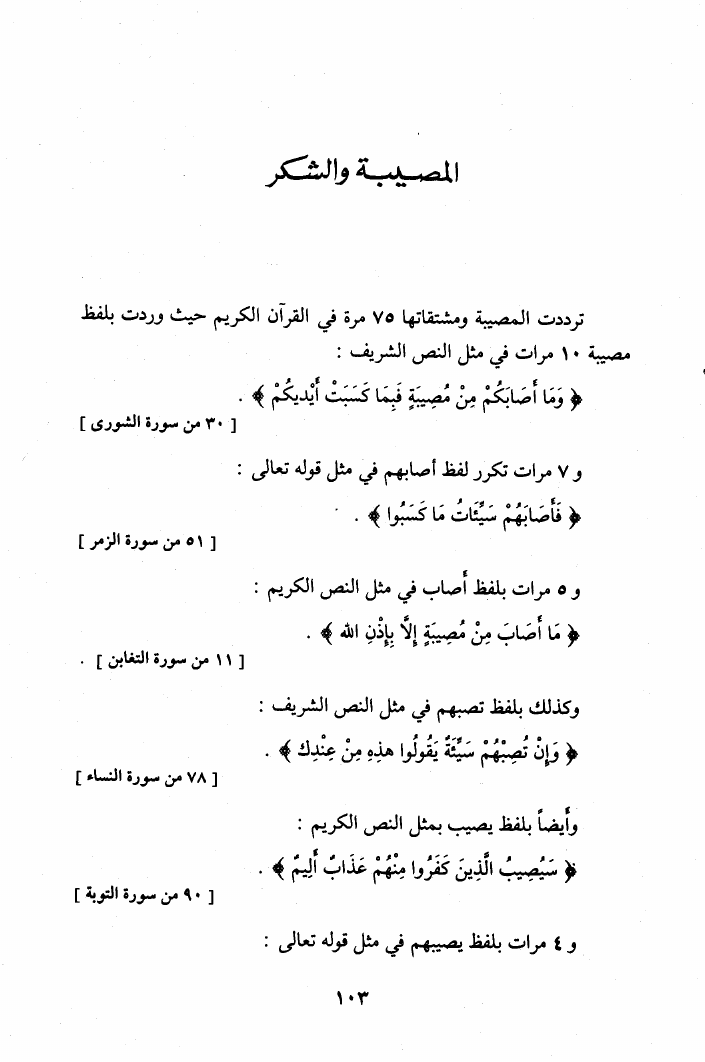 المصيبة والشكر
ترددت المصيبة ومشتقاتها ٧٥ مرة في القرآن الكريم حيث وردت بلفظ
مصيبة ١٠ مرات في مثل النص الشريف :
﴿ وَمَا أَصَابَكُمْ مِنْ مُصِيبَةٍ فَبِمَا كَسَبَتْ أَيْدِيكُمْ ﴾ .
[ ٣٠ من سورة الشورى ]
و ٧ مرات تكرر لفظ أصابهم في مثل قوله تعالى :
﴿ فَأَصَابَهُمْ سَيِّئَاتُ مَا كَسَبُوا ﴾ .
[ ٥١ من سورة الزمر ]
و ٥ مرات بلفظ أصاب في مثل النص الكريم :
﴿ مَا أَصَابَ مِنْ مُصِيبَةٍ إِلَّا بِإِذْنِ الله ﴾ .
[ ١١ من سورة التغابن ] .
وكذلك بلفظ تصبهم في مثل النص الشريف :
﴿ وَإِنْ تُصِبْهُمْ سَيِّئَةٌ يَقُولُوا هذِهِ مِنْ عِنْدِك ﴾ .
[ ٧٨ من سورة النساء ]
وأيضاً بلفظ يصيب بمثل النص الكريم :
﴿ سَيُصِيبُ الَّذِينَ كَفَرُوا مِنْهُمْ عَذَابٌ أَلِيمٌ ﴾ .
[ ٩٠ من سورة التوبة ]
و ٤ مرات بلفظ يصيبهم في مثل قوله تعالى :
١٠٣